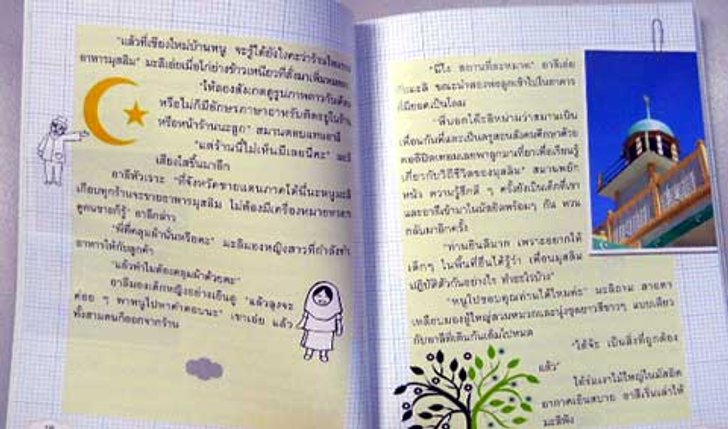 "แล้วที่เชียงใหม่บ้านหนู จะรู้ได้ยังไงคะว่าร้านไหนขาย
อาหารมุสลิม" มะลิเอ่ยเมื่อไก่ย่างข้าวเหนียวที่สั่งมาเพิ่มหมดลง
"ให้ลองสังเกตดูรูปภาพดาวกับเดือน
หรือไม่ก็มีอักษรภาษาอาหรับติดอยู่ในร้าน
หรือหน้าร้านนะลูก" สมานตอบแทนอาลี
"แต่ร้านนี้ไม่เห็นมีเลยนี่คะ" มะลิ
เสียงใสขึ้นมาอีก
อาลีหัวเราะ "ที่จังหวัดชายแดนภาคใต้นี่นะหนูมะลิ
เกือบทุกร้านจะขายอาหารมุสลิม ไม่ต้องมีเครื่องหมายหรอก
ดูคนขายก็รู้" อาลีกล่าว
"พี่ที่คลุมผ้านั่นหรือคะ" มะลิมองหญิงสาวที่กำลังทำ
อาหารให้กับลูกค้า
"แล้วทำไมต้องคลุมผ้าด้วยคะ"
อาลีมองเด็กหญิงอย่างเอ็นดู "แล้วลุงจะ
ค่อย ๆ พาหนูไปหาคำตอบนะ" เขาเอ่ย แล้ว
ทั้งสามคนก็ออกจากร้าน
"นี่ไง สถานที่ละหมาด" อาลีเอ่ย
กับมะลิ ขณะนำสองพ่อลูกเข้าไปในอาคาร
ที่มียอดเป็นโดม
"พี่บอกโต๊ะอิหม่ามว่าสมานเป็น
เพื่อนกันพี่และเป็นครูสอนสังคมศึกษาด้วย
เกี่ยวกับวิถีชีวิตของมุสลิม" สมานพยัก
หน้า ความรู้สึกดี ๆ ครั้งยังเป็นเด็กที่เขา
และอาลีเข้ามาในมัสยิดพร้อมๆ กัน หวน
กลับมาอีกครั้ง
"ท่านยินดีมาก เพราะอยากให้
เด็กๆ ในพื้นที่อื่นได้รู้ว่า เพื่อนมุสลิม
ปฏิบัติตัวกันอย่างไร ทำอะไรบ้าง"
"หนูไปขอบคุณท่านได้ไหมค่ะ" มะลิถาม สายตา
เหลือบมองผู้ใหญ่สวมหมวกและนุ่งชุดยาวสีขาวๆ แบบเดียว
กับอาลีที่เดินกันเต็มไปหมด
"ได้จ้ะ เป็นสิ่งที่ถูกต้อง
แล้ว"
ใต้ร่มเงาไม้ใหญ่ในมัสยิด
อากาศเย็นสบาย อาลีเริ่มเล่าให้
มะลิฟัง